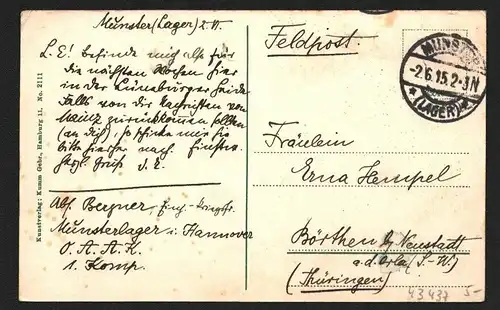 Münster (Lager) 2. VI.
L. E! befinde mich also für
die nächsten Wochen hier
in der Lüneburger Heide
Falls von die Nachrichten von
Mainz zurückkommen sollten
(an dich), so schicke mir sie
bitte hierher nach.
herzl. Gruß
Abs. Bergner,
Munsterlager i. Hannover
O. A. A. K.
1. Komp.
Kunstverlag: Kumm Gebr., Hamburg 11. No. 2111
Feldpost.
MUNSTER
-2.6.15.2-3N
* (LAGER) *
Fräulein
Erna Hempel
Börthen by Neustadt
a.d. Orla (S.-W.)
(Thüringen)
43437 5-